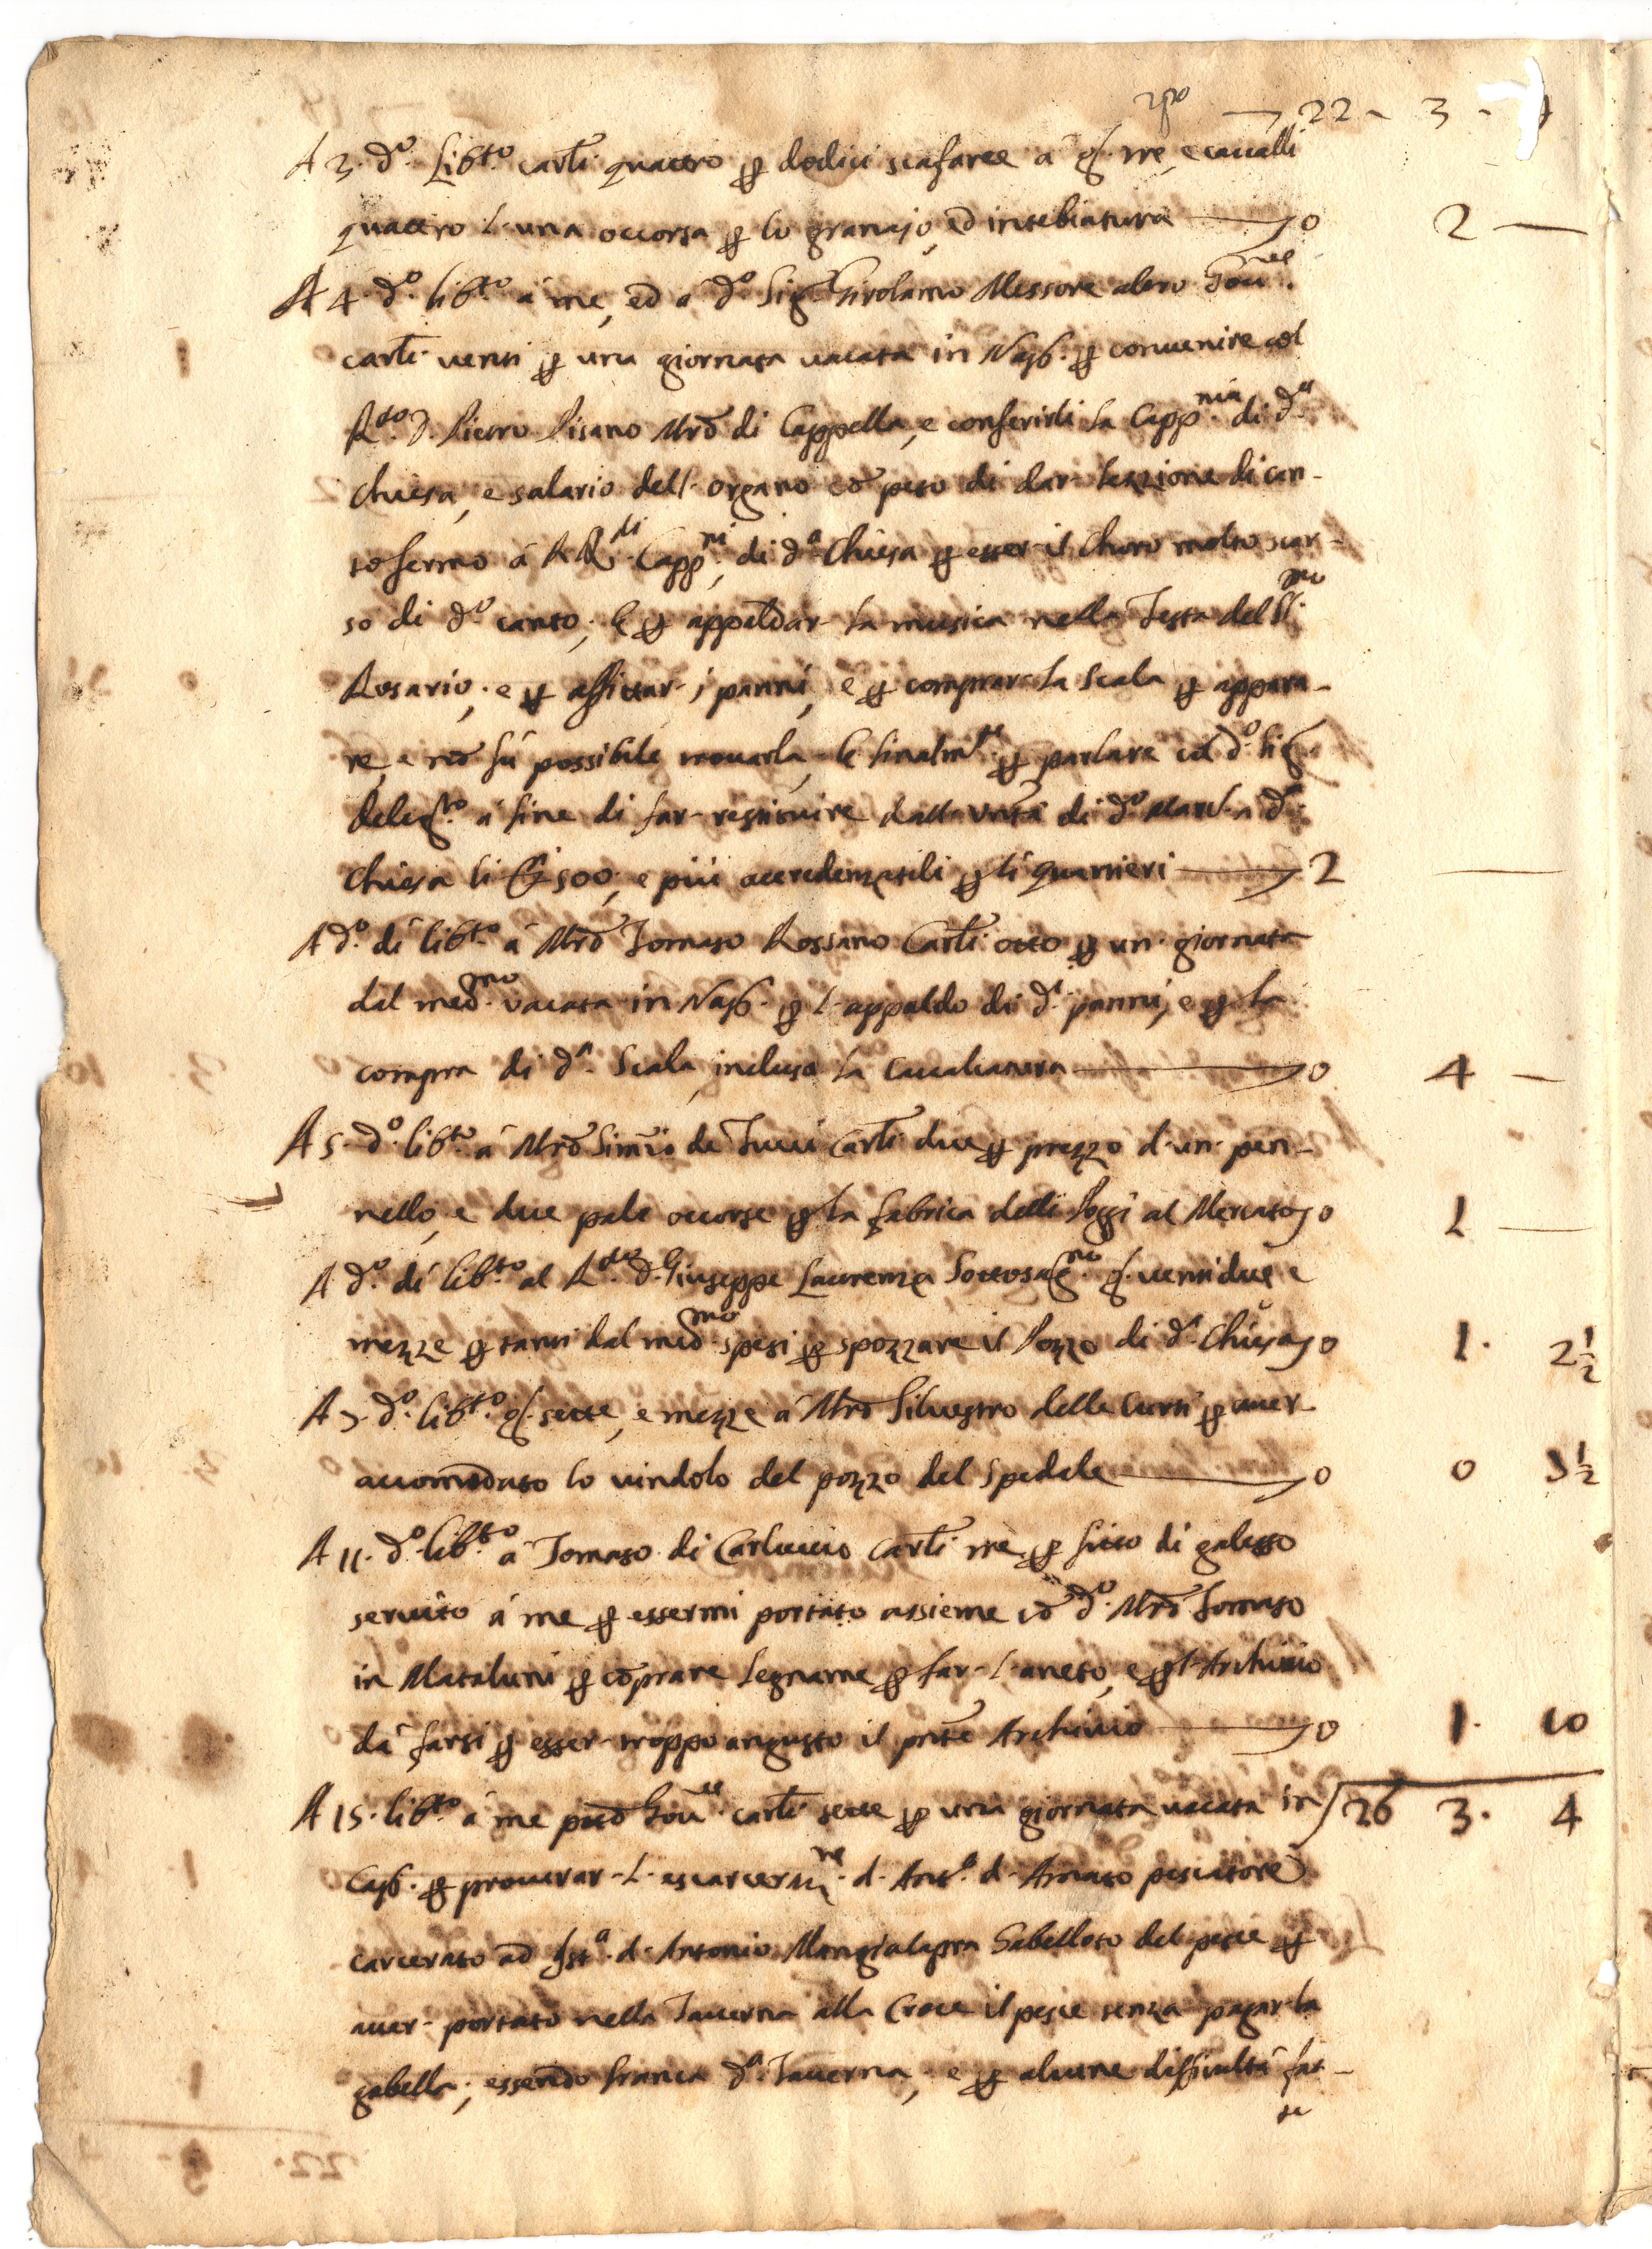 rpto 22 - 3 - 4
A 3. d.o Lib.to carli quattro p dodici scafaree à g. tre, e cavalli
quattro l'una occorsa p lo granajo, ed intebiatura — 0 2 —
A 4. d.o lib.to à me, ed à d.o Sig.r Girolamo Messore altro Gov.re
carli venti p una giornata vacata in Nap. p convenire col
R.do D. Pietro Pisano Mro di Cappella, e conferirli la Capp.nia di d.a
Chiesa, e salario dell'organo cō peso di dar lezzione di can-
to fermo à RR.di Capp.ni di d.a Chiesa p esser il Choro molto scar-
so di d.o canto; E p appaldar la musica nella Festa del SS.mo
Rosario; e p affittar i panni, e p comprar la Scala p appara-
re, e nō fù possibile trovarla, E finalm.te p parlare col d.o Sig.
deleg.to à fine di far restituire dalla Unità di d.o à d.a
Chiesa li 500, e più accredenzatili p li quartieri — 2 —
A d.o dì lib.to à Mrō Tomaso Rossano Carli otto p un giornata
dal med.mo vacata in Nap. p l'appaldo di d.i panni, e p la
compra di d.a Scala, inclusa la cavalcatura — 0 4 —
A 5. d.o lib.to à Mrō Simio de Tucci Carli due p prezzo d'un pen-
nello, e due pale occorse p la fabrica delli Poggi al Mercato 0 1 —
A d.o dì lib.to al R.do D. Giuseppe Laurenza Sottosag.no g. ventidue e
mezze p tanti dal med.mo spesi p spozzare il Pozzo di d.a Chiesa 0 1. 2½
A 7. d.o lib.to g. sette, e mezze à Mrō Silvestro delle Curti p aver
accomōdato lo vindolo del pozzo del Spedale — 0 0 7½
A 11. d.o lib.to à Tomaso di Carluccio carli trè p fitto di galesso
servito à me p essermi portato assieme cō d.o Mrō Tomaso
in Mataluni p cōprare legname p far l'aneto, e p l'Archivio
dà farsi p esser troppo angusto il pnte Archivio — 0 1. 10
A 15. lib.to à me pttō Gov.re carli sette p una giornata vacata in 26 3. 4
Cap. p procurar l'escarcer.ne d'Ant.o d'Amato pescatore
carcerato ad Ist.a d'Antonio Mangialapra Gabelloto del pesce p
aver portato nella Taverna alla Croce il pesce senza pagar la
gabella; essendo franca d.a Taverna; e p alcune difficultà fat-
te